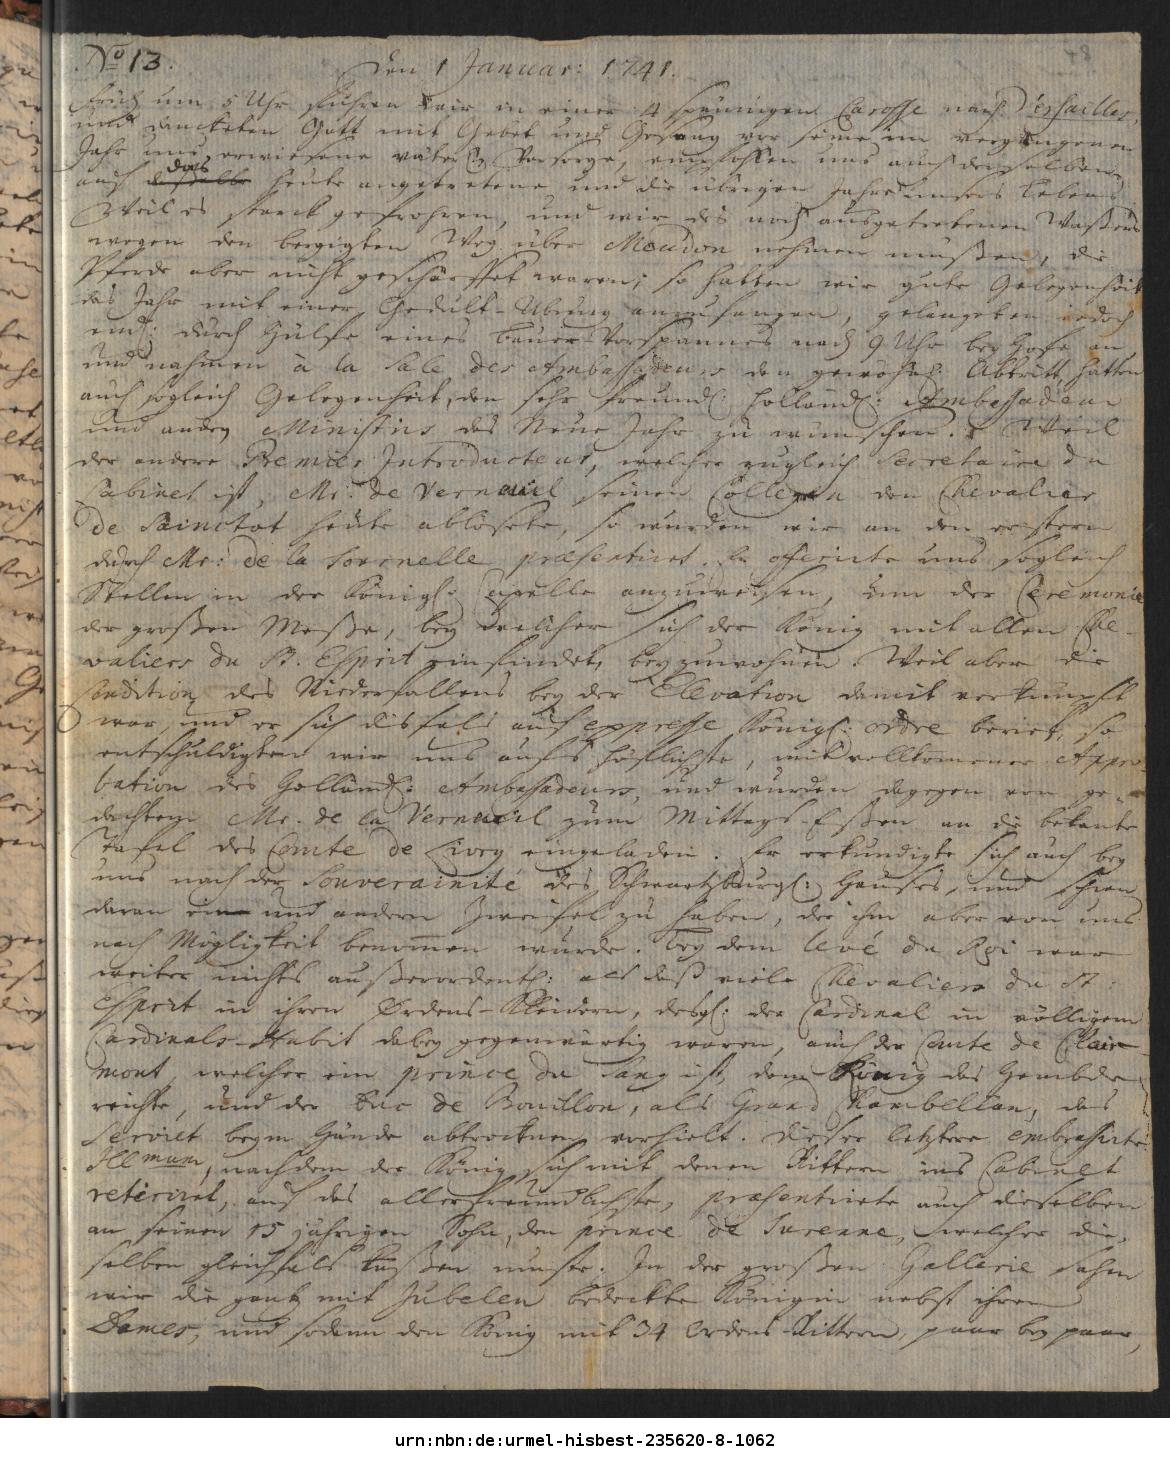 No 13.
Den 1 Januar: 1741.
Früh um 5 Uhr fuhren wir in einer 4 spännigen Carosse nach Versailles,
und danckten Gott mit Gebet und Gesang vor seine im vergangenen
Jahr uns erwiesene väterl: Vorsorge, empfohlen uns auch derselben
auf das heute angetretene und die übrigen Jahre unsers Lebens.
Weil es starck gefrohren, und wir des noch ausgetretenen Waßers
wegen den bergigten Weg über Meudon nehmen mußten, die
Pferde aber nicht geschärffet waren; so hatten wir gute Gelegenheit
das Jahr mit einer Gedult-Ubung anzufangen, gelangten jedoch
endl: durch Hülfe eines Bauer Vorspannes nach 9 Uhr bey Hofe an,
und nahmen à la Sale des Ambassadeurs den gewöhnl: Abtritt, hatten
auch sogleich Gelegenheit, den sehr freundl: Holländ: Ambassadeur
und andern Ministris das Neue Jahr zu wünschen. Weil
der andere Premier Introducteur, welcher zugleich Secretaire du
Cabinet ist, Mr: de Verneuil seinen Collegen den Chevalier
de Sainctot heute ablösete, so wurden wir an den erstern
durch Mr: de la Tournelle præsentiret. Er offerirte uns sogleich
Stellen in der Königl: Capelle anzuweisen, um der Ceremonie
der großen Meße, bey welcher sich der König mit allen Che-
valiers du St. Esprit einfindet, beyzuwohnen. Weil aber die
Condition des Niederfallens bey der Elevation damit verknüpft
war, und er sich disfals auf expresse Königl: ordre berief, so
entschuldigten wir uns aufs höflichste, mit vollkomener Appro-
bation des Holländ: Ambassadeurs, und wurden dagegen von ge-
dachtem Mr. de la Verneuil zum Mittags-Eßen an die bekante
Tafel des Comte de Livry eingeladen. Er erkundigte sich auch bey
uns nach der Souverainité des Schwartzburgl: Hauses, und schien
daran ein und andern Zweifel zu haben, der ihm aber von uns
nach Mögligkeit benommen wurde. Bey dem levé du Roi war
weiter nichts außerordentl: als daß viele Chevaliers du St:
Esprit in ihren Ordens-Kleidern, desgl: der Cardinal in völligem
Cardinals-Habit dabey gegenwärtig waren, auch der Comte de Clair-
mont, welcher ein prince du sang ist, dem König das Hembde
reichte, und der Duc de Bouillon, als Grand Chambellan, das
Serviet beym Hände abtrocknen vorhielt. Dieser letztere embrassirte
Illmum, nachdem der König sich mit denen Rittern ins Cabinet
retiriret, auf das allerfreundlichste, præsentirete auch dieselben
an seinen 15 jährigen Sohn, den prince de Turenne, welcher die-
selben gleichfals küßen muste. In der großen Gallerie sahen
wir die gantz mit Jubelen bedeckte Königin nebst ihren
Dames, und sodann den König mit 34 Ordens-Rittern, paar bey paar,
urn:nbn:de:urmel-hisbest-235620-8-1062